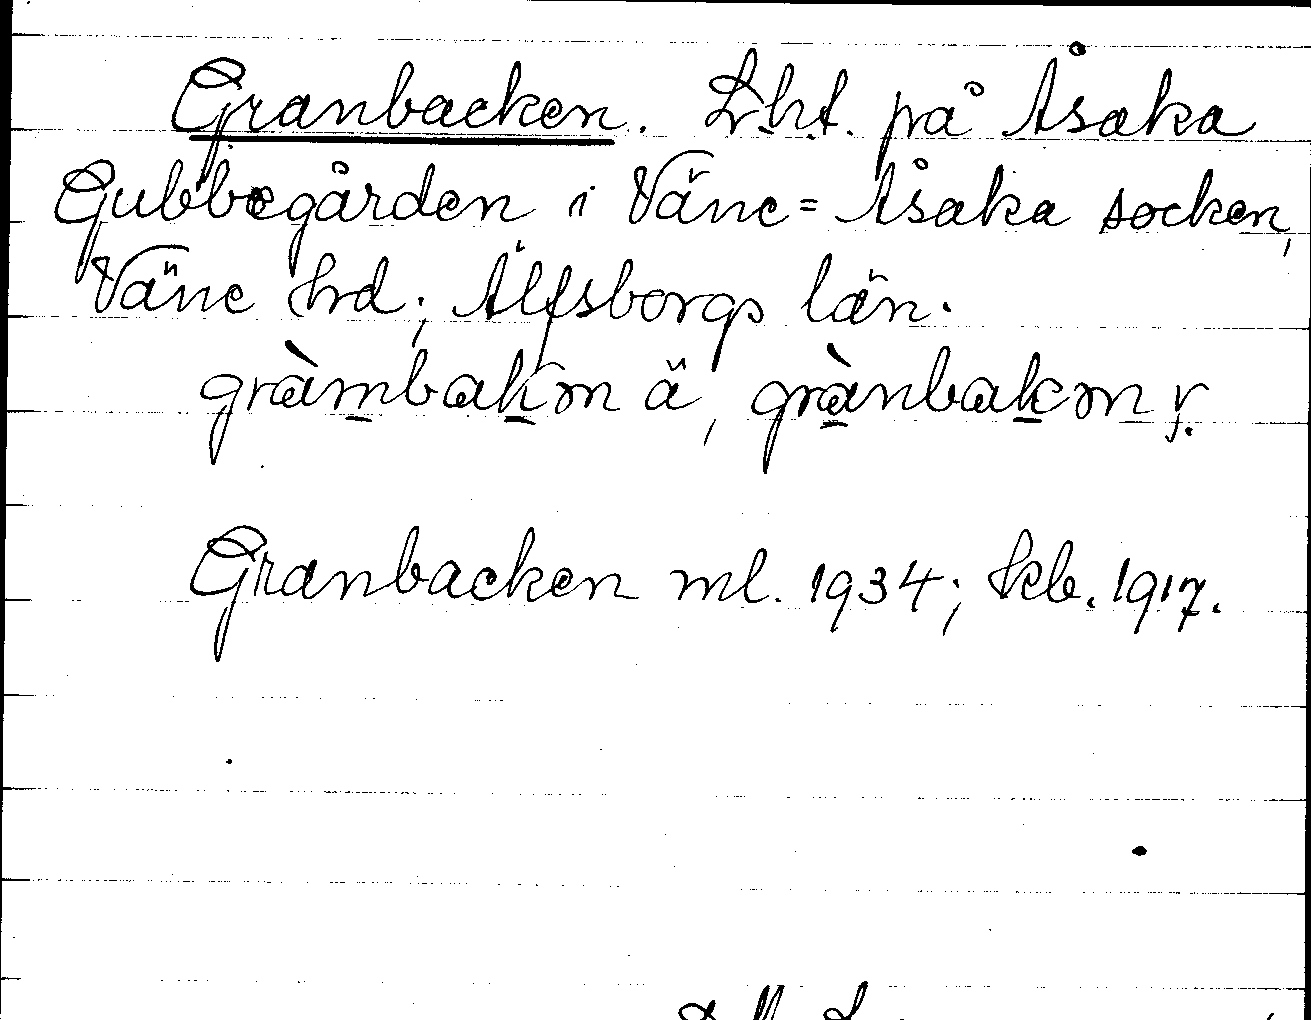 Granbacken. Lht. på Åsaka
Gubbegården i Väne=Åsaka socken,
Väne hrd; Älfsborgs län.
gràmbakɷn ä, grànbakɷn y.
Granbacken ml. 1934; kb. 1917.